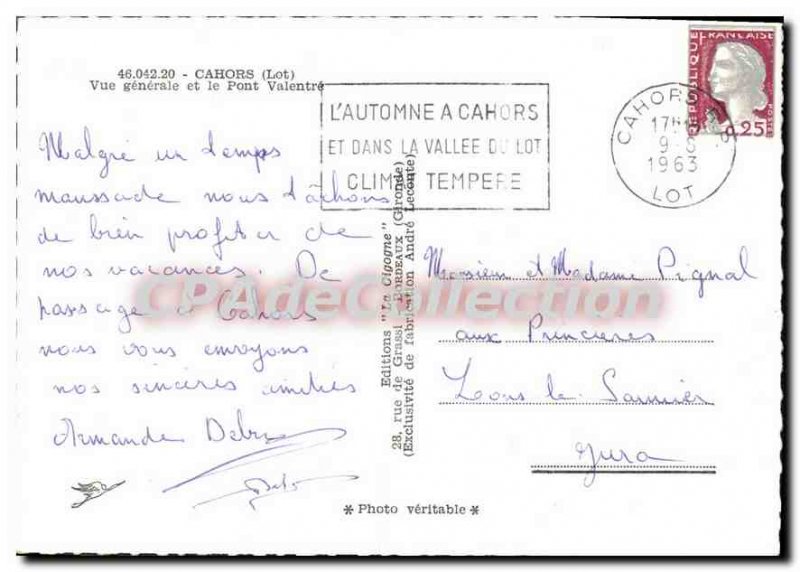 46.042.20 - CAHORS (Lot)
Vue générale et le Pont Valentré
L'AUTOMNE A CAHORS
ET DANS LA VALLEE DU LOT
CLIMAT TEMPERE
CAHORS
17H
9-8
1963
LOT
REPUBLIQUE FRANÇAISE
0,25
POSTES
Malgré un temps
maussade nous tâchons
de bien profiter de
nos vacances. De
passage à Cahors
nous vous envoyons
nos sincères amitiés
Armande
Editions "La Cigogne"
28, rue de Grassi - BORDEAUX (Gironde)
(Exclusivité de fabrication André Leconte)
Monsieur et Madame Pignal
aux Princieres
Lons le Saunier
Jura
* Photo véritable *
CPAdeCollection